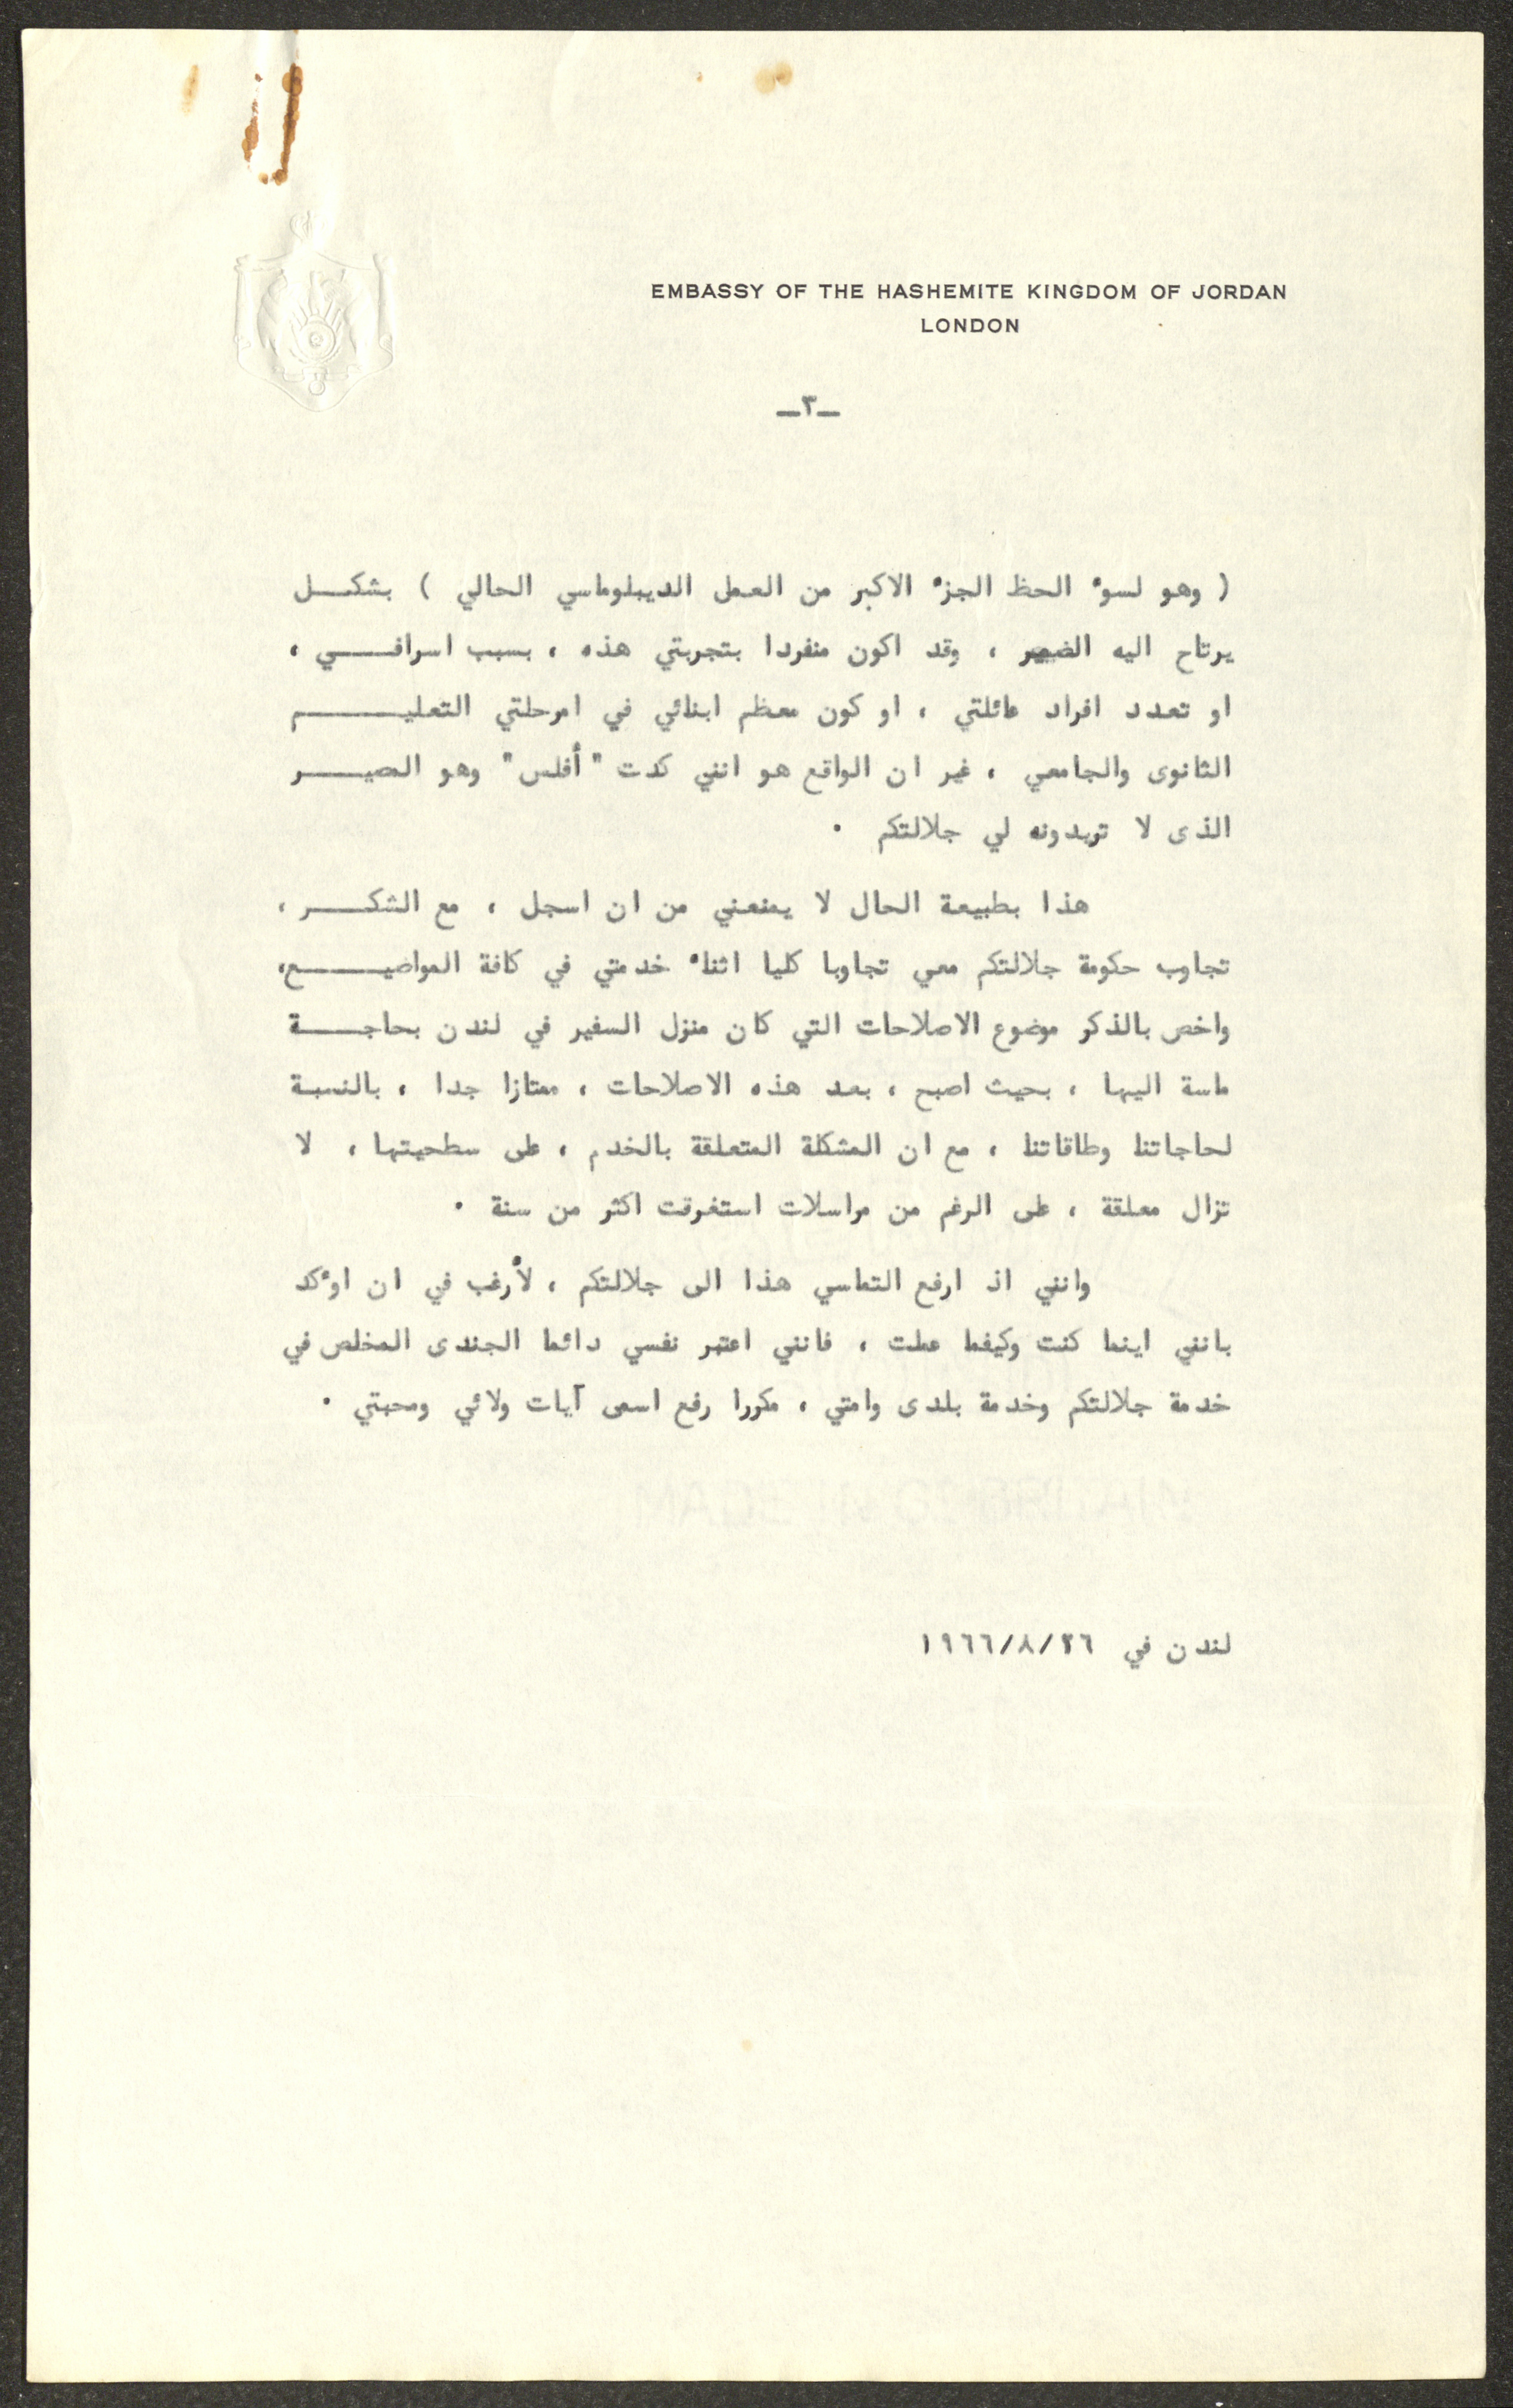 EMBASSY OF THE HASHEMITE KINGDOM OF JORDAN
LONDON
—٣—
( وهو لسوء الحظ الجزء الاكبر من العمل الديبلوماسي الحالي ) بشكــل
يرتاح اليه الضمير ، وقد اكون منفردا بتجربتي هذه ، بسبب اسرافــي ،
او تعدد افراد عائلتي ، او كون معظم ابنائي في امرحلتي التعليــم
الثانوى والجامعي ، غير ان الواقع هو انني كدت "أفلس" وهو المصيــر
الذى لا تريدونه لي جلالتكم .
هذا بطبيعة الحال لا يمنعني من ان اسجل ، مع الشكــر ،
تجاوب حكومة جلالتكم معي تجاوبا كليا اثناء خدمتي في كافة المواضيــع،
واخص بالذكر موضوع الاصلاحات التي كان منزل السفير في لندن بحاجــة
ماسة اليها ، بحيث اصبح ، بعد هذه الاصلاحات ، ممتازا جدا ، بالنسبة
لحاجاتنا وطاقاتنا ، مع ان المشكلة المتعلقة بالخدم ، على سطحيتها ، لا
تزال معلقة ، على الرغم من مراسلات استغرقت اكثر من سنة .
وانني اذ ارفع التماسي هذا الى جلالتكم ، لأرغب في ان اوكد
بانني اينما كنت وكيفما عملت ، فانني اعتبر نفسي دائما الجندى المخلص في
خدمة جلالتكم وخدمة بلدى وامتي ، مكررا رفع اسمى آيات ولائي ومحبتي .
لندن في ١٩٦٦/٨/٢٦